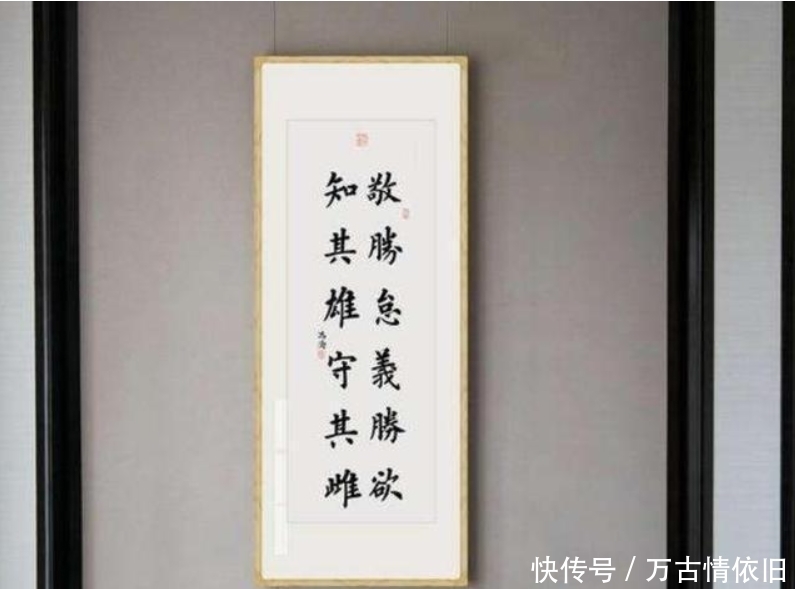 敬勝怠義勝欲
知其雄守其雌
快传号 / 万古情依旧